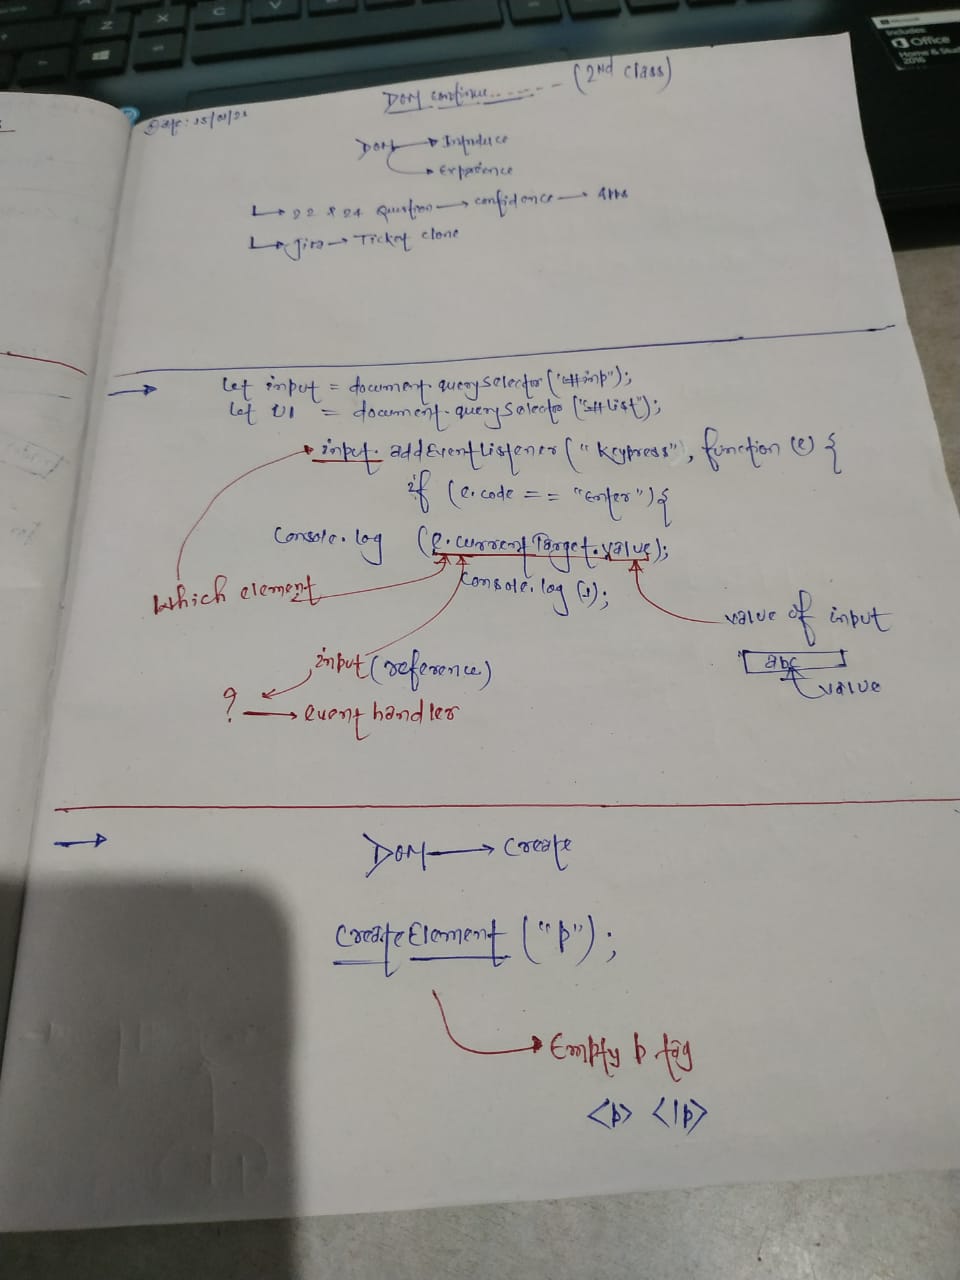 Date: 15/01/21
DOM continue....... (2nd class)
DOM → Introduce
→ Experience
↳ 22 & 24 Question → confidence →
↳ Jira → Ticket clone
→ let input = document.querySelector("#inp");
let Ul = document.querySelector(".list");
input.addEventListener("Keypress", function (e) {
if (e.code == "Enter") {
Console.log (e.currentTarget.value);
Console.log (1);
Which element
value of input
abc
value
input (reference)
? → event handler
→ DOM → Create
CreateElement ("p");
Empty p tag
<p> </p>
Microsoft
Includes
Office
Home & Stud
2016
Z
X
C
V